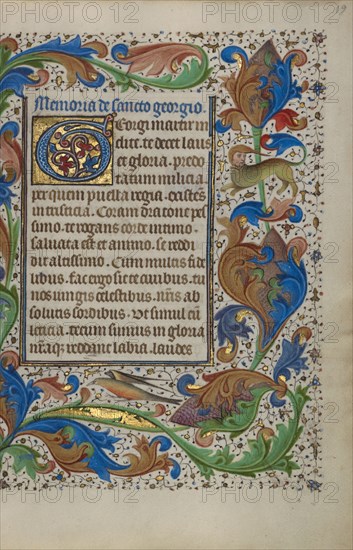 19
Memoria de sancto georgio.
Georgi martir in
clite. te decet laus
et gloria. predo
tatum milicia.
per quem puella regia. existēs
in tristicia. Coram dracone pes
simo. te rogans corde intimo.
saluata est et animo. se reddi
dit altissimo. Cum multis fide
libus. fac ergo sic te ciuibus.
nos iungi celestibus. nr̄is ab
solutis sordibus. Ut simul cū
leticia. tecum simus in gloria
nr̄aq; reddant labia. laudes
PHOTO12